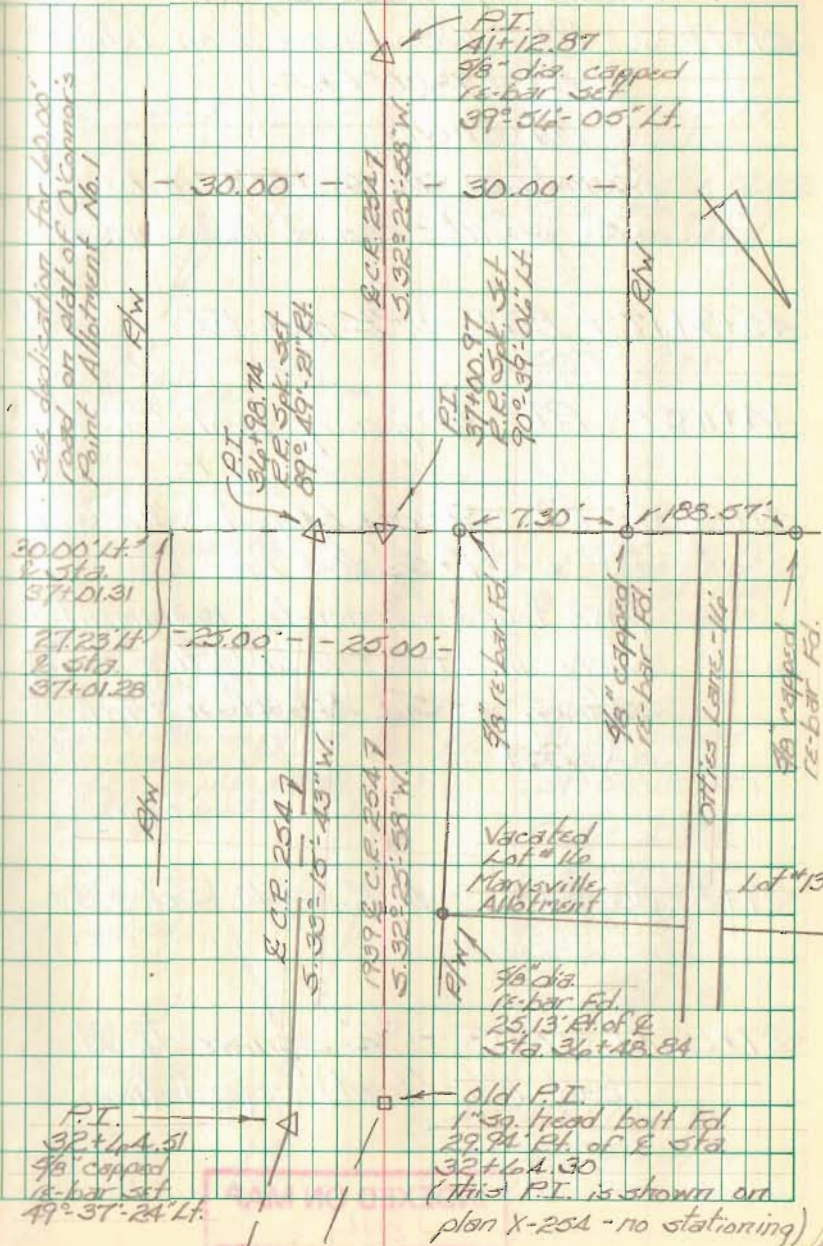 P.I.
41+12.87
5/8" dia. capped
re-bar set
39°-56'-05" Lt.
See dedication for 60.00'
road on plat of O'Connor's
Point Allotment No. 1
R/W
30.00'
℄ C.R. 254.7
S.32°-25'-58" W.
30.00'
R/W
P.I.
36+98.74
R.R. Spk. set
89°-49'-21" Rt.
P.I.
37+00.97
R.R. Spk. Set
90°-39'-06" Lt.
7.30'
188.57'
30.00' Lt.
℄ Sta.
37+01.31
27.23' Lt.
℄ Sta
37+01.28
25.00'
25.00'
5/8" re-bar Fd.
5/8" capped
re-bar Fd.
Offics Lane-16'
5/8" capped
re-bar Fd.
R/W
℄ C.R. 254.7
S.33°-15'-43" W.
1939 ℄ C.R. 254.7
S.32°-25'-58" W.
Vacated
Lot #16
Marysville
Allotment
Lot #13
R/W
5/8" dia.
re-bar Fd.
25.13' Rt. of ℄
Sta. 36+48.84
P.I.
32+64.51
5/8" capped
re-bar set
49°-37'-24" Lt.
Old P.I.
1" sq. head bolt Fd.
29.94' Rt. of ℄ Sta
32+64.30
(This P.I. is shown on
plan X-254 - no stationing)